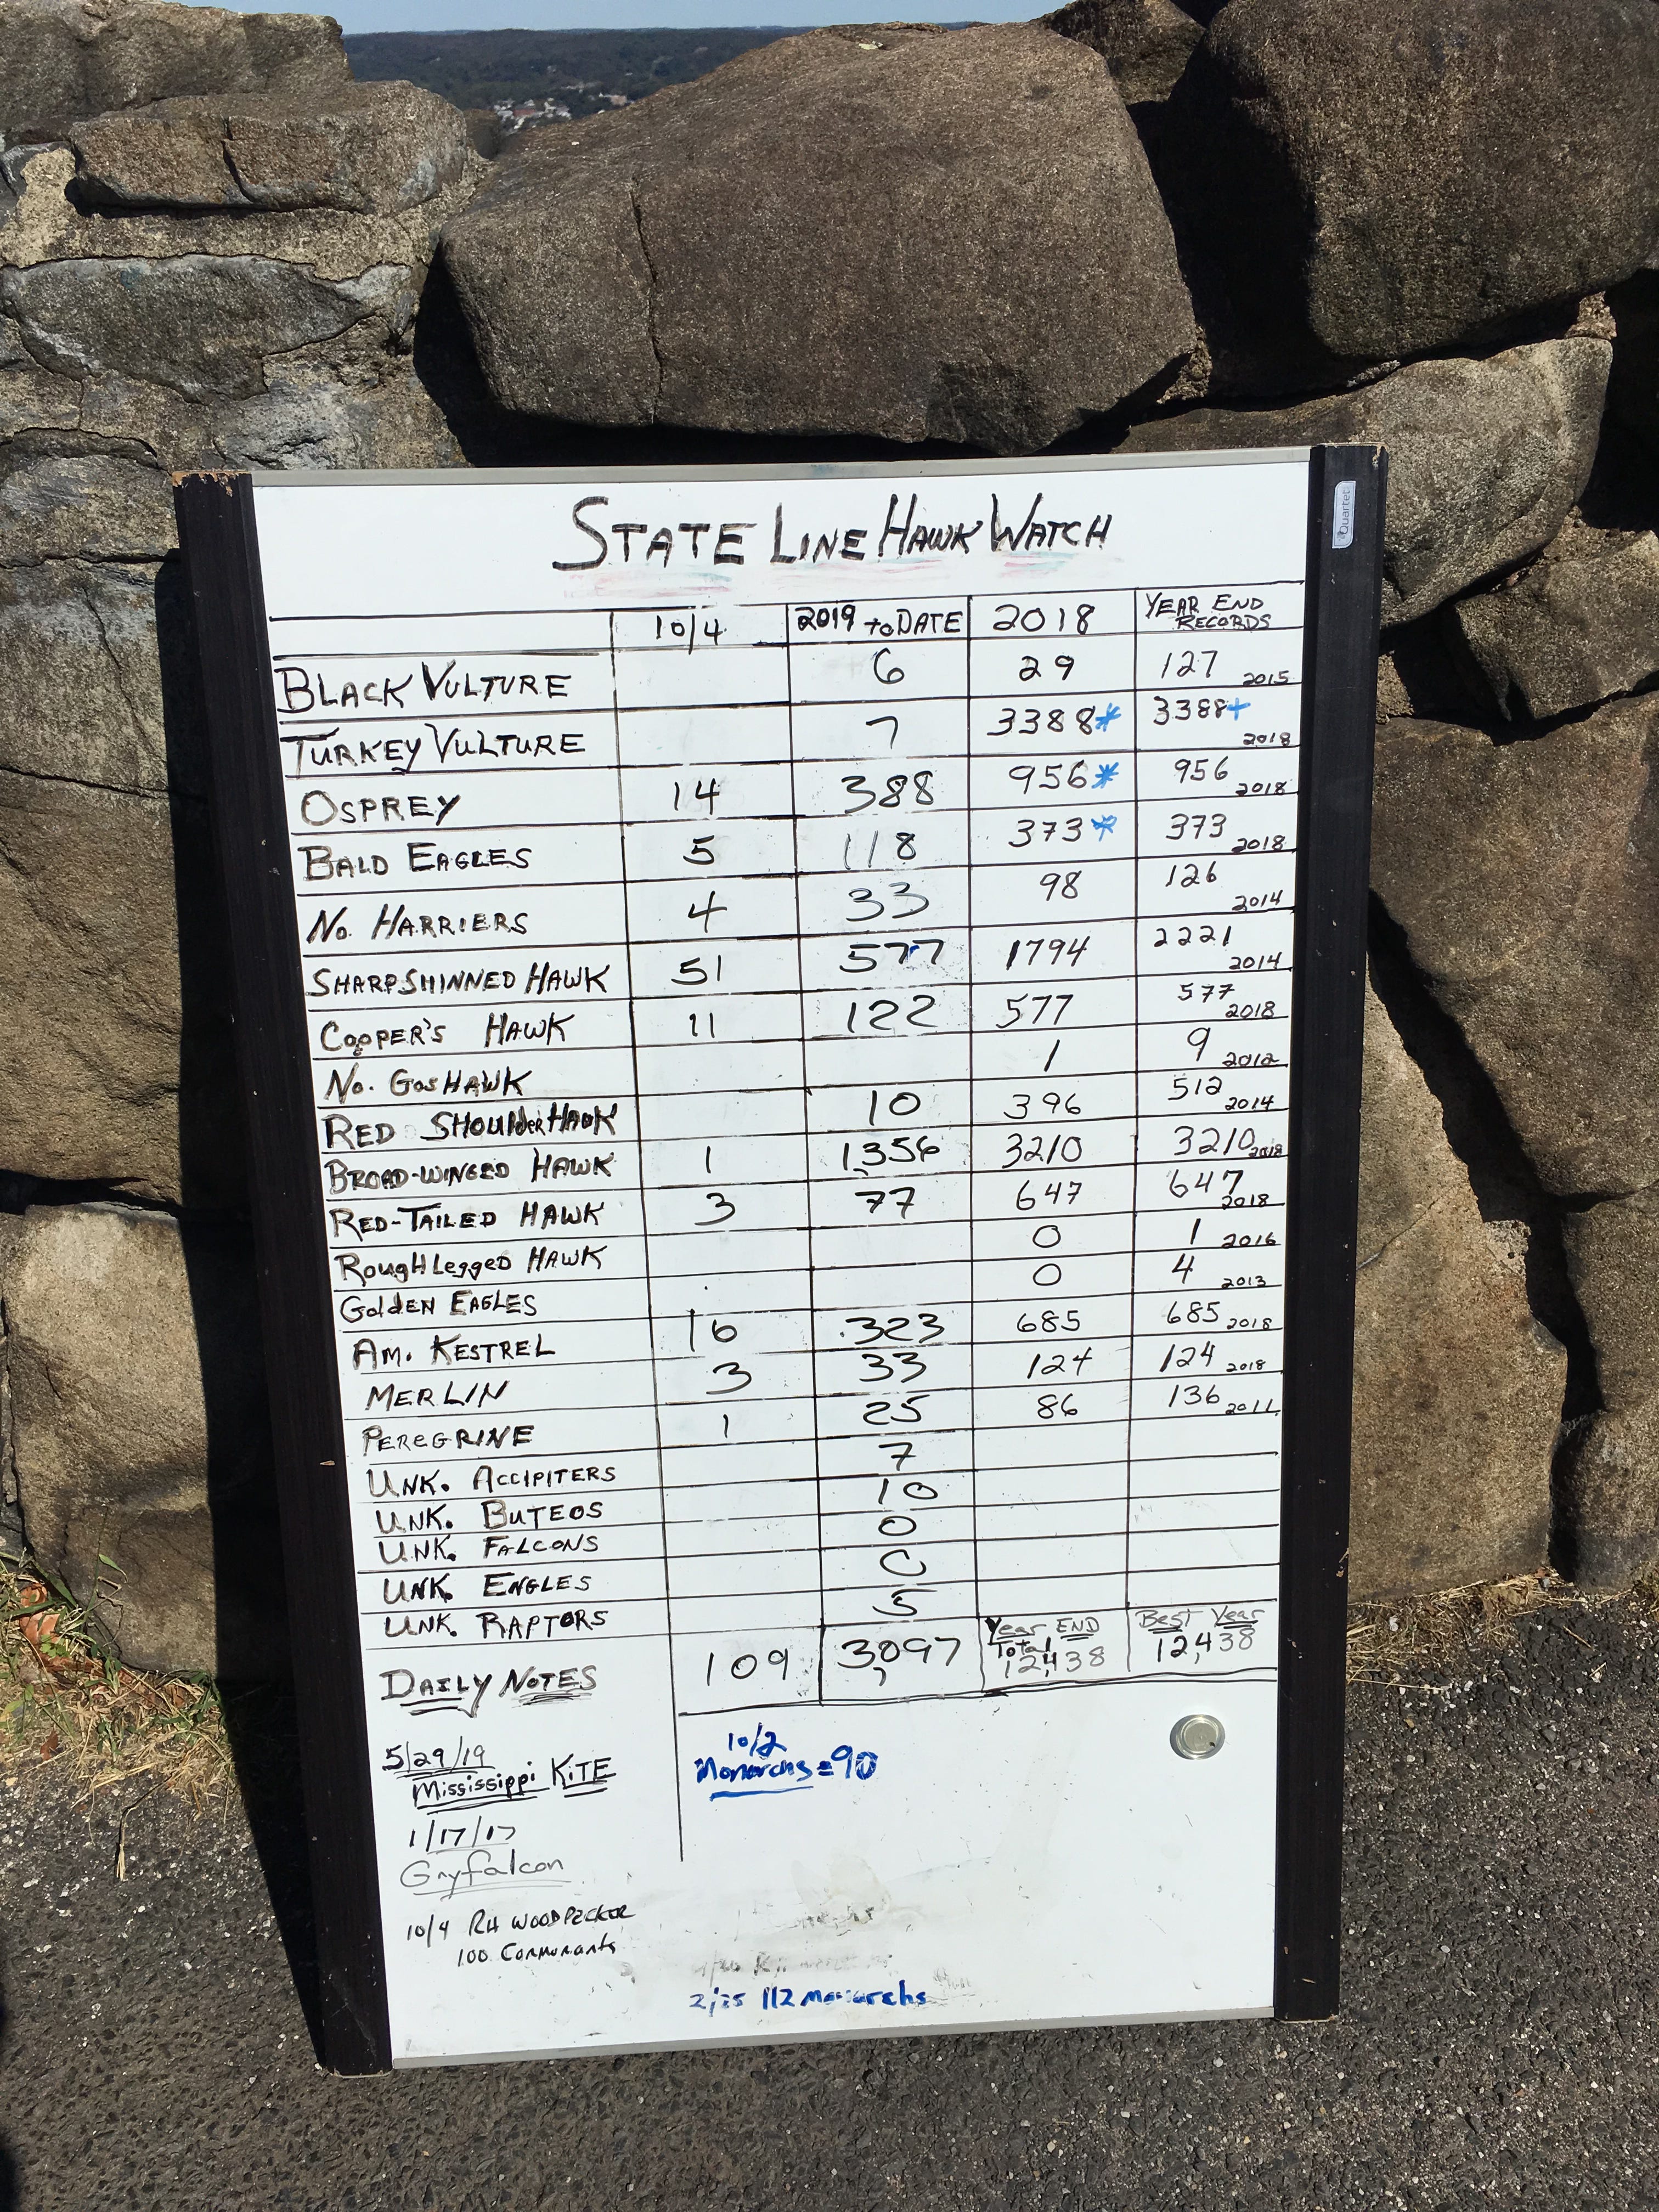 STATE LINE HAWK WATCH
Quartet
10/4 2019 to DATE 2018 YEAR END RECORDS
BLACK VULTURE 6 29 127 2015
TURKEY VULTURE 7 3388* 3388+ 2018
OSPREY 14 388 956* 956 2018
BALD EAGLES 5 118 373* 373 2018
No. HARRIERS 4 33 98 126 2014
SHARPSHINNED HAWK 51 577 1794 2221 2014
COOPER'S HAWK 11 122 577 577 2018
No. GosHAWK 1 9 2012
RED SHOULderHAWK 10 396 512 2014
BROAD-WINGED HAWK 1 1,356 3210 3210 2018
RED-TAILED HAWK 3 77 647 647 2018
RougHLeggeD HAWK 0 1 2016
GoldEN EAGLES 0 4 2013
AM. KESTREL 16 323 685 685 2018
MERLIN 3 33 124 124 2018
PEREGRINE 1 25 86 136 2011
UNK. ACCIPITERS 7
UNK. BUTEOS 10
UNK. FALCONS 0
UNK. ENGLES 0
UNK. RAPTORS 5
109 3,097 Year END Total 12,438 Best Year 12,438
DAILY NOTES
5/29/19
Mississippi KiTE
10/2
Monarchs = 90
1/17/17
Gryfalcon
10/4 RH WOODPECKER
100 Cormorants
112 Monarchs